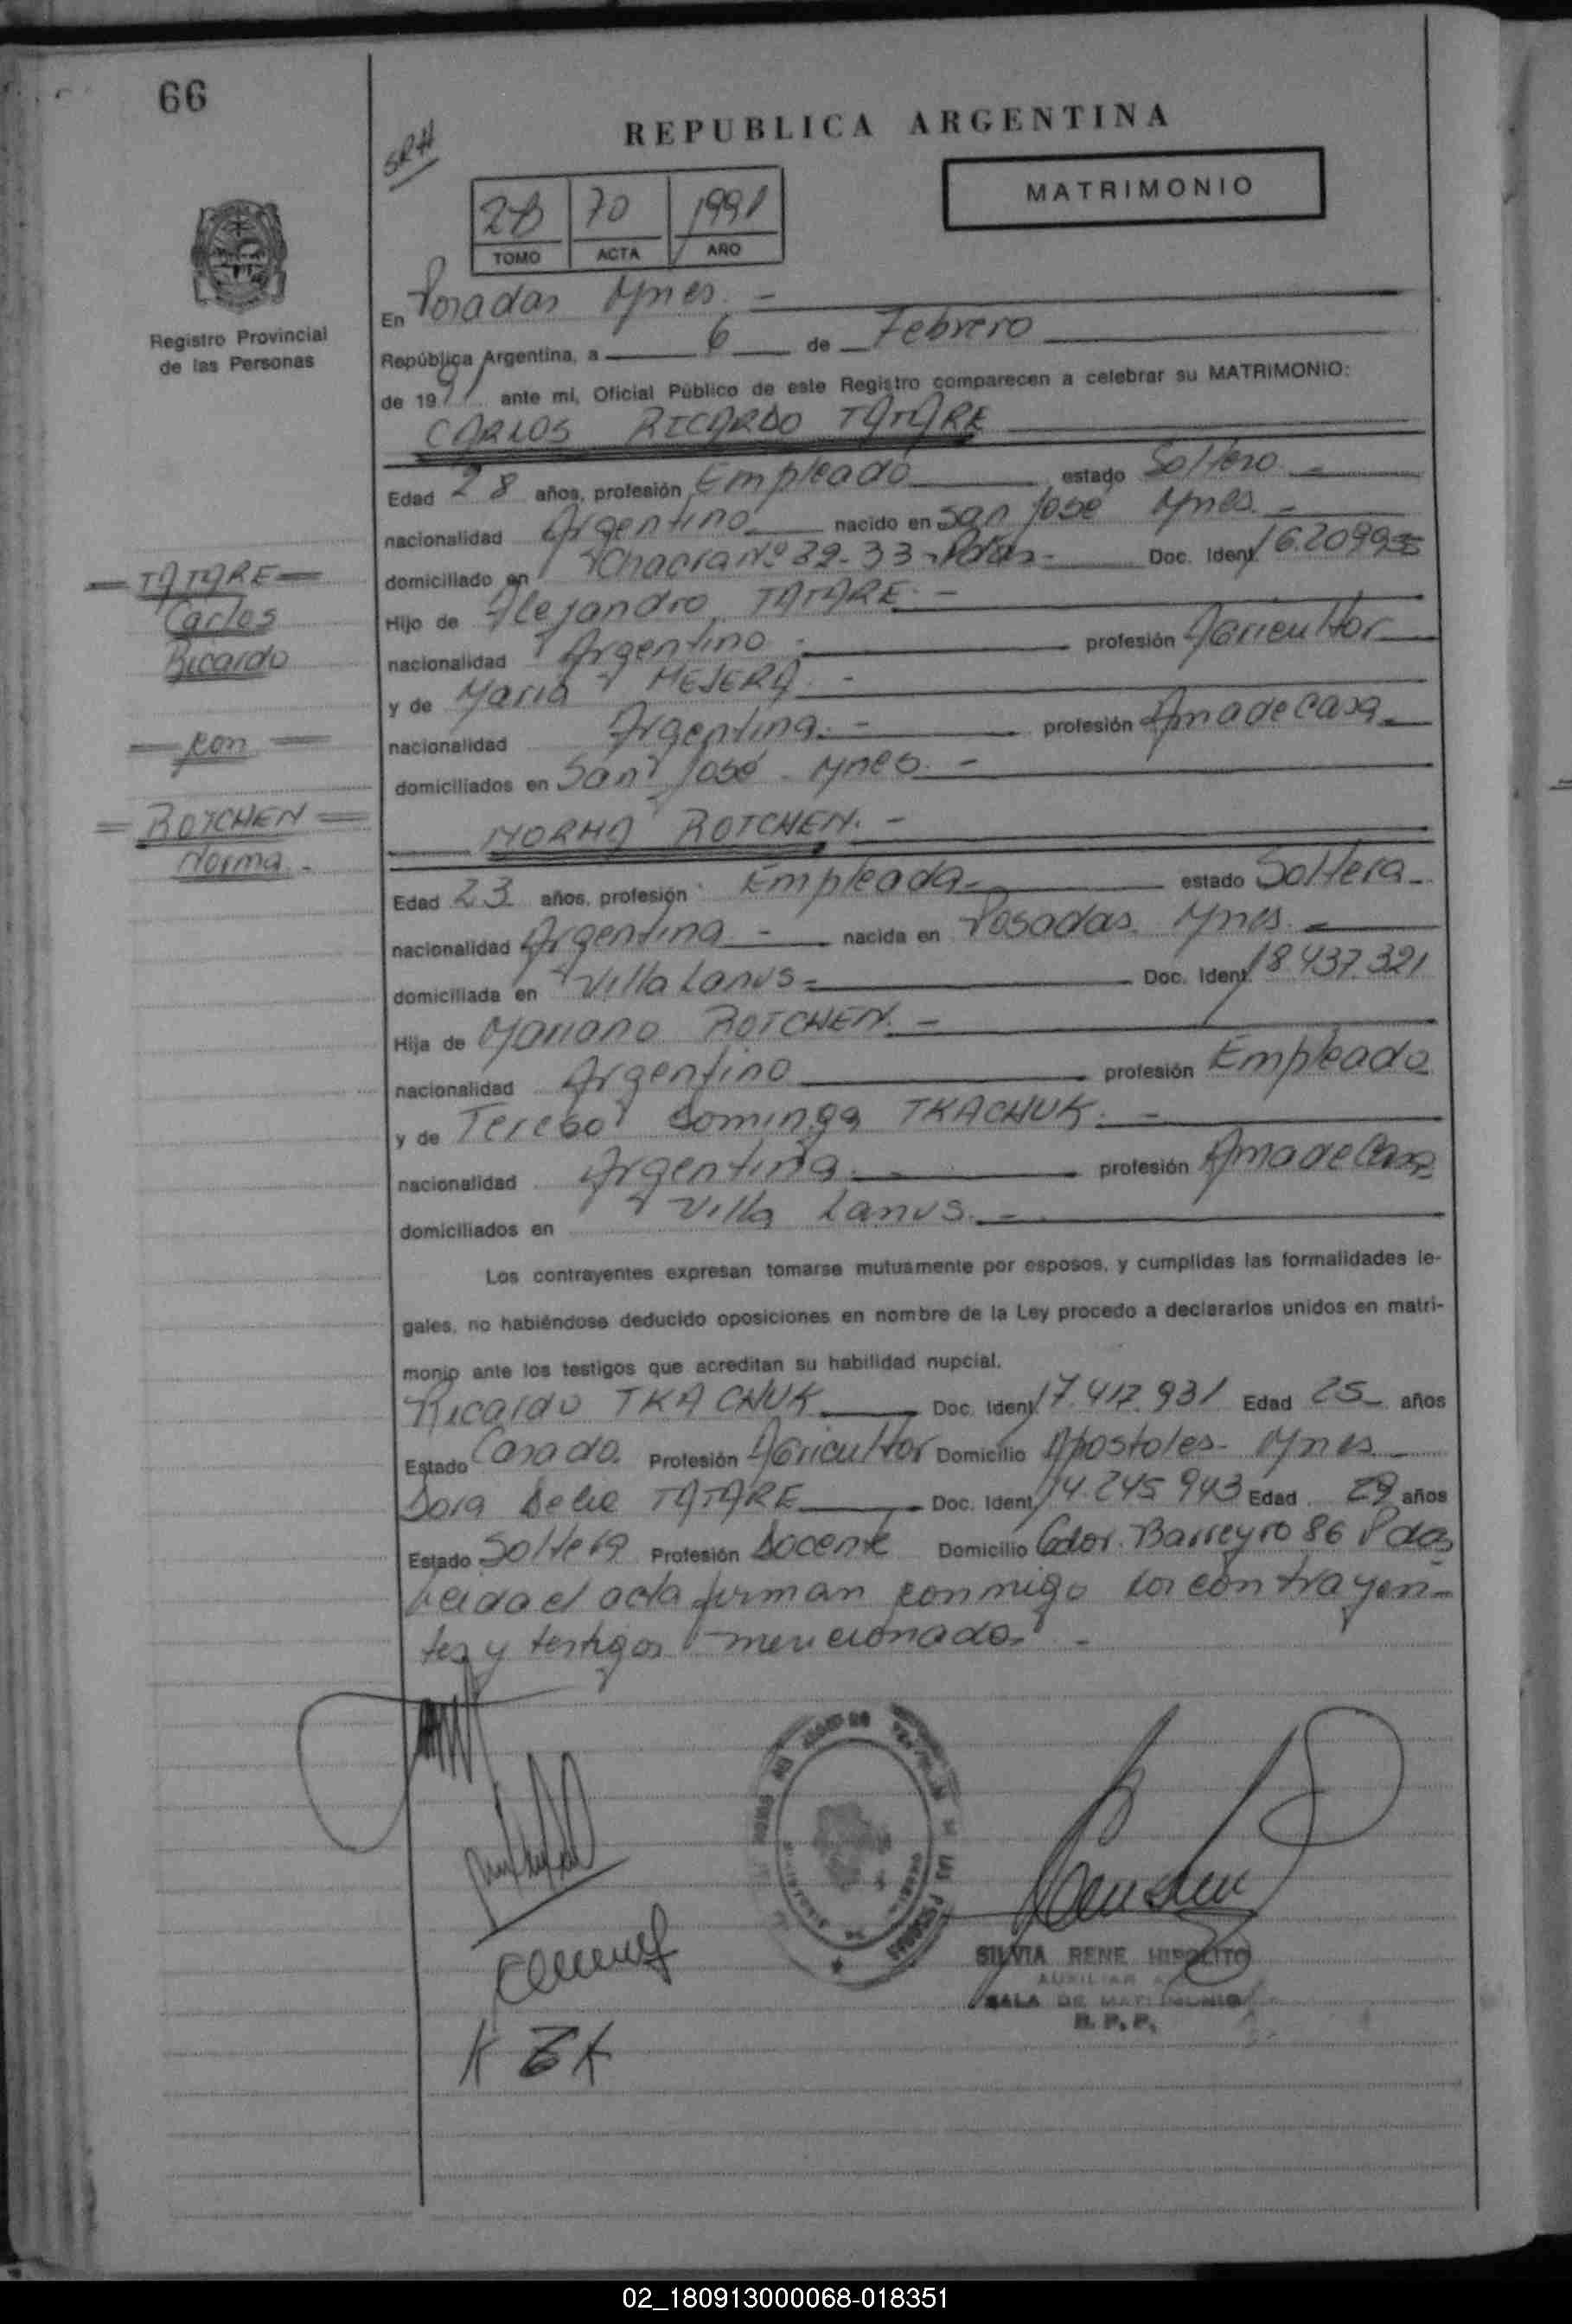 66
SRH
REPUBLICA ARGENTINA
MATRIMONIO
2B 70 1991
TOMO ACTA AÑO
Registro Provincial
de las Personas
En Posadas Mnes. -
República Argentina, a 6 de Febrero
de 1991 ante mi, Oficial Público de este Registro comparecen a celebrar su MATRIMONIO:
CARLOS RICARDO TATARE
Edad 28 años, profesión Empleado estado Soltero. -
nacionalidad Argentino nacido en San José Mnes. -
domiciliado en Chacra Nº 32-33-Pdas- Doc. Ident. 16.209.935
Hijo de Alejandro TATARE. -
nacionalidad Argentino - profesión Agricultor
y de Maria MEJERA. -
nacionalidad Argentina. - profesión Ama de Casa
domiciliados en San José - Mnes. -
NORMA ROTCHEN. -
Edad 23 años, profesión Empleada- estado Soltera-
nacionalidad Argentina - nacida en Posadas Mnes. -
domiciliada en Villa Lanus- Doc. Ident. 18.437.321
Hija de Mariano ROTCHEN. -
nacionalidad Argentino profesión Empleado
y de Teresa Dominga TKACHUK. -
nacionalidad Argentina. - profesión Ama de Casa
domiciliados en Villa Lanus. -
Los contrayentes expresan tomarse mutuamente por esposos, y cumplidas las formalidades le-
gales, no habiéndose deducido oposiciones en nombre de la Ley procedo a declararlos unidos en matri-
monio ante los testigos que acreditan su habilidad nupcial.
Ricardo TKACHUK Doc. Ident. 17.412.931 Edad 25 años
Estado Casado. Profesión Agricultor Domicilio Apostoles- Mnes
Dora Delie TATARE Doc. Ident. 14.245.943 Edad 29 años
Estado Soltera Profesión Docente Domicilio Gdor. Barreyro 86 Pdas
Leida el acta firman conmigo los contrayen-
tes y testigos mencionados. -
=TATARE=
Carlos
Ricardo
= con =
=ROTCHEN=
Norma. -
SILVIA RENE HIPOLITO
AUXILIAR
SALA DE MATRIMONIO
R. P. P.
02_180913000068-018351